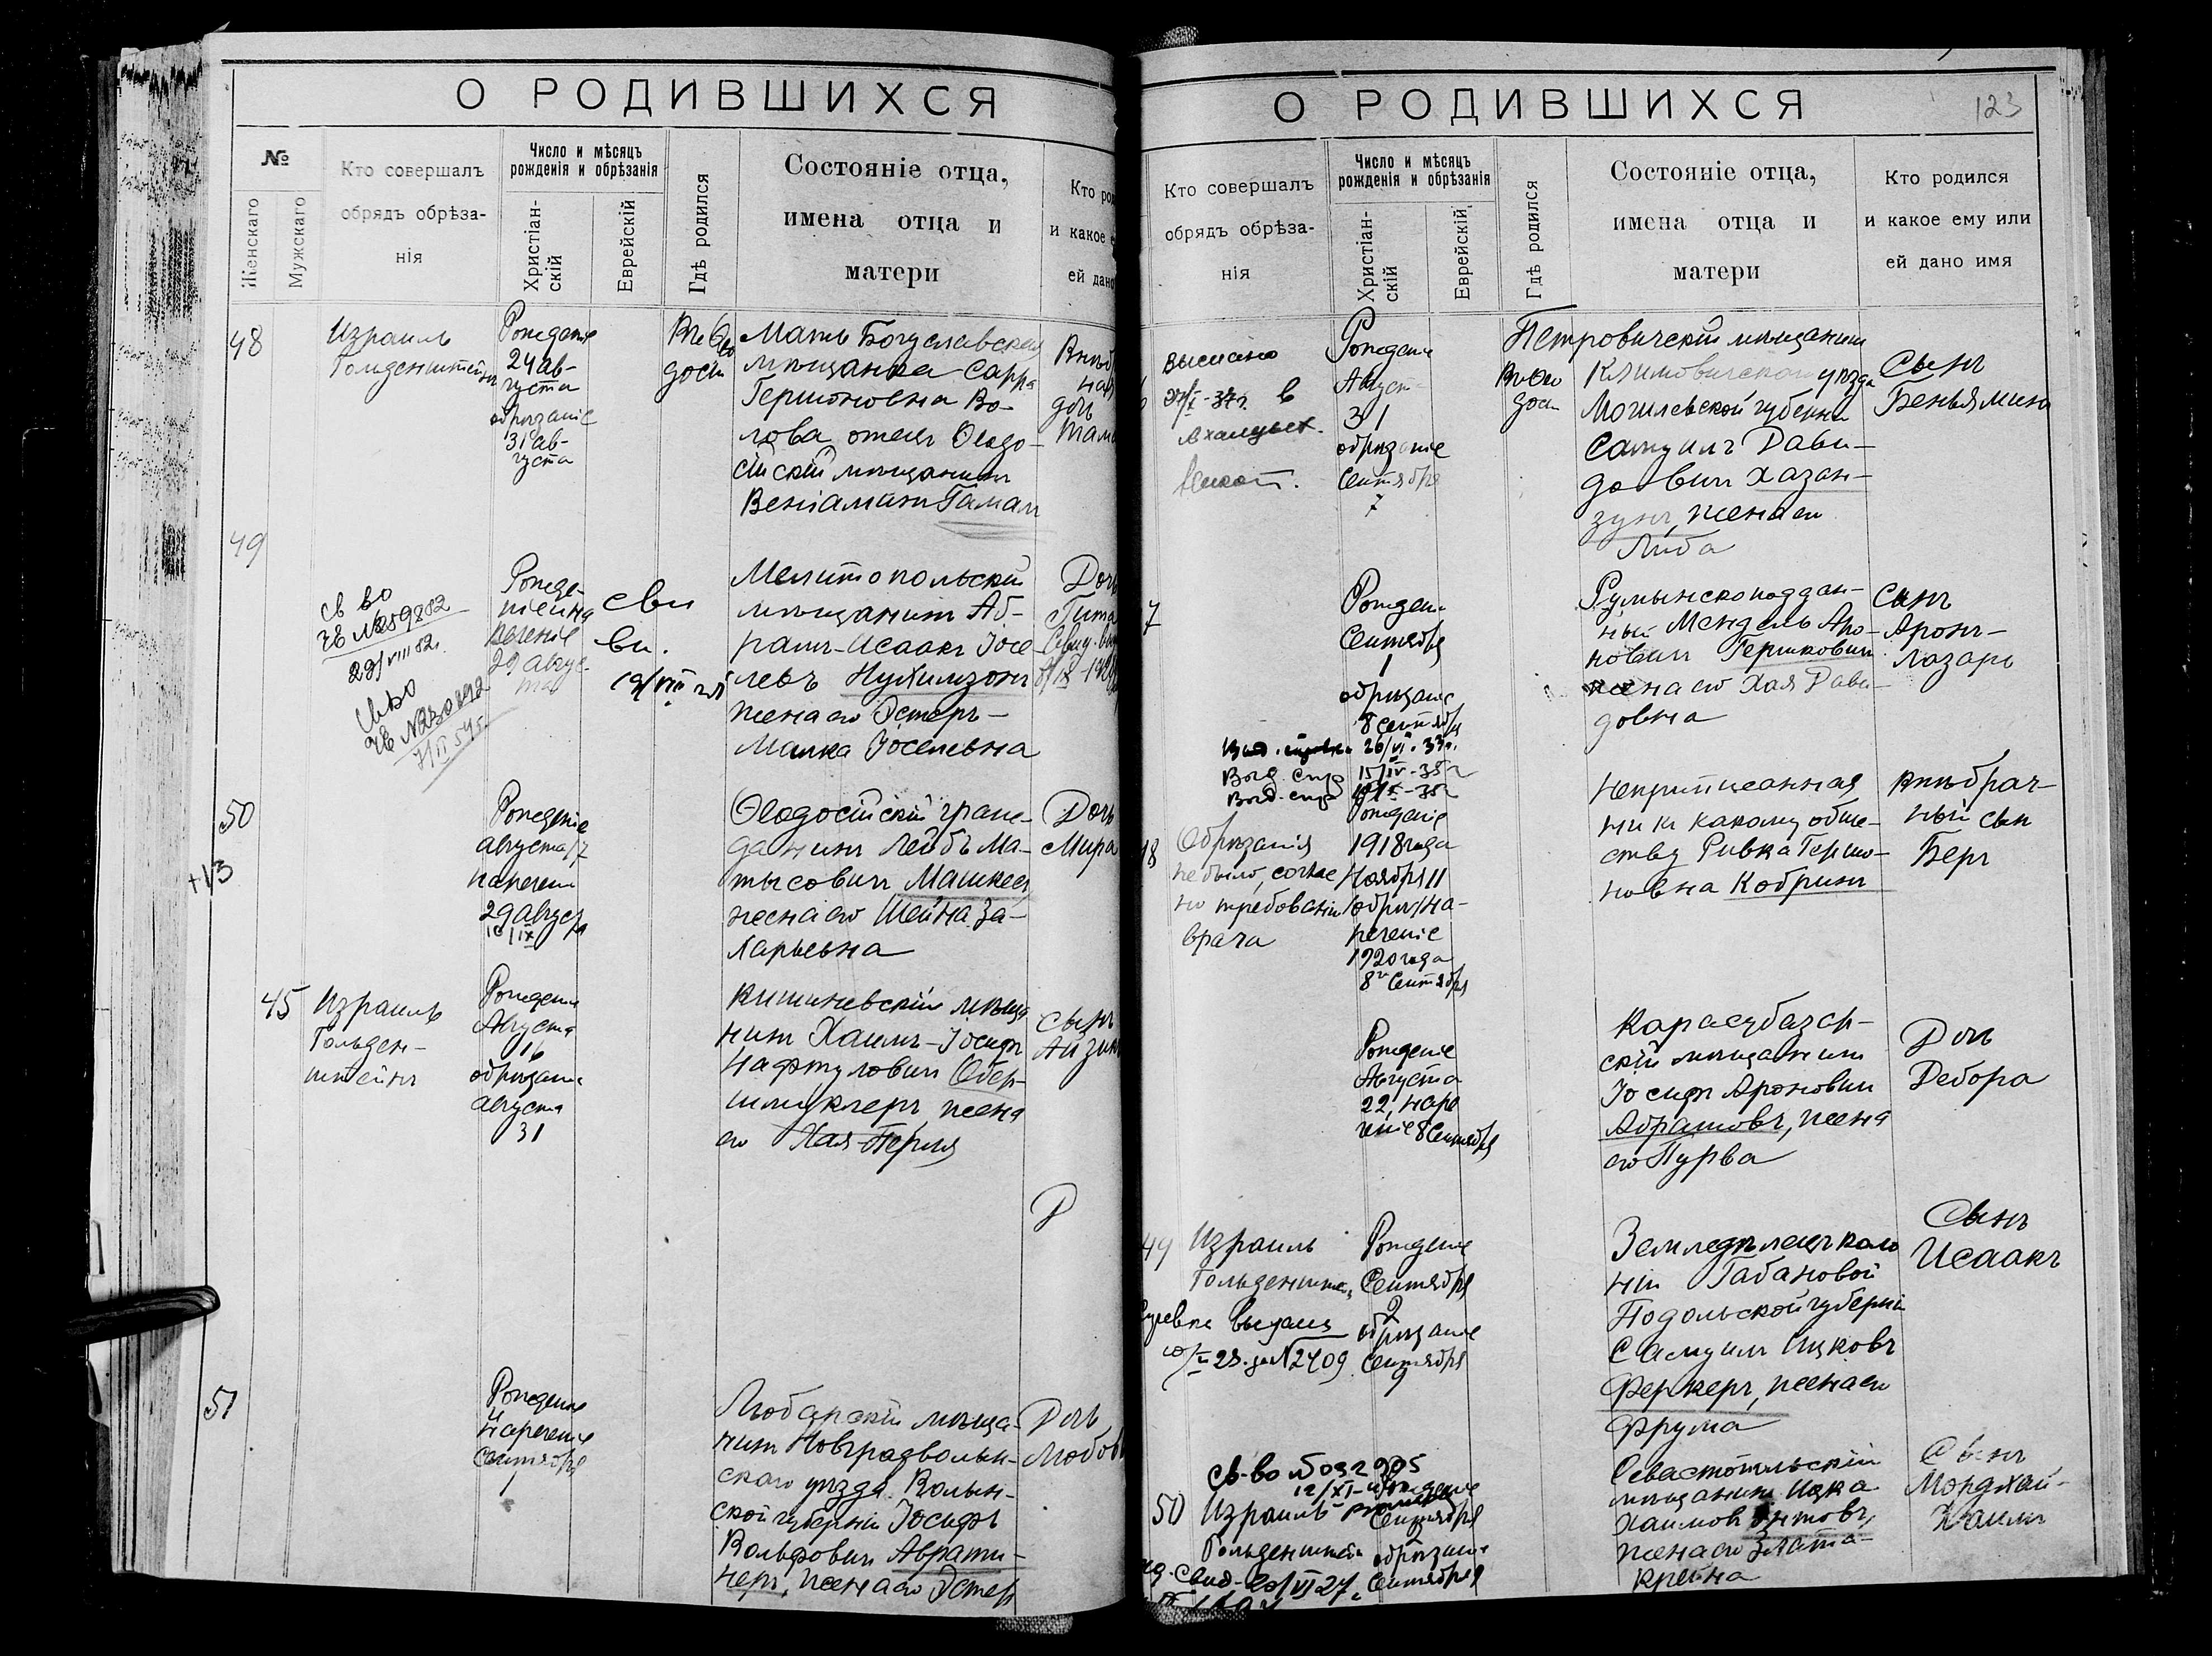 О РОДИВШИХСЯ
№
Женскаго
Мужскаго
Кто совершалъ
обрядъ обрѣза-
нія
Число и мѣсяцъ
рожденія и обрѣзанія
Христіан-
скій
Еврейскій
Гдѣ родился
Состояніе отца,
имена отца и
матери
Кто род
и какое е
ей дано
48
Израиль
Рожденіе
24 ав-
густа
обрѣзаніе
31 ав-
густа
Въ Ѳео
досіи
Мать Богуславская
мѣщанка Сарра
Гершоновна Во-
лова отецъ Ѳеодо-
сійскій мѣщанинъ
Веніаминъ Таман
Внѣб
дочь
Тама
49
св во
29/VIII 52.
св во
Рожде-
реченіе
29 авгус-
та
Мелитопольскій
мѣщанинъ Аб-
рамъ-Исаакъ Іосе-
левъ Нухимзонъ
жена его Эстеръ-
Малка Іоселевна
Дочь
Гита
50
+13
Рожденіе
августа 17
наречен
29 август
Ѳеодосійскій граж-
данинъ Лейбъ Ма-
тысовичъ Машкеч
жена его Шейна За-
харьевна
Дочь
Мира
45
Израиль
Гольден-
штейнъ
Рожденіе
Августа
16
обрѣзаніе
августа
31
Кишиневскій мѣща
нинъ Хаимъ-Іосифъ
Нафтуловичъ Обер-
шмуклеръ, жена
его Хая-Перля
Сынъ
Айзик
Р
51
Рожденіе
Нареченіе
Сентября
1
Любарскій мѣща-
нинъ Новградволын-
скаго уѣзда Волын-
ской губерніи Іосифъ
Вольфовичъ Аврати-
неръ, жена его Эстер
Дочь
Любовь
О РОДИВШИХСЯ
123
Кто совершалъ
обрядъ обрѣза-
нія
Число и мѣсяцъ
рожденія и обрѣзанія
Христіан-
скій
Еврейскій
Гдѣ родился
Состояніе отца,
имена отца и
матери
Кто родился
и какое ему или
ей дано имя
выслано
в
Рожденіе
Август
31
обрѣзаніе
Сентября
7
Въ Ѳео
досіи
Петровичскій мѣщанинъ
Климовичскаго уѣзда
Могилевской губерніи
Самуилъ Дави-
довичъ Хазан-
зунъ, жена его
Либа
Сынъ
Беньяминъ
7
Рожден.
Сентября
1
обрѣзаніе
8 сентября
20/VI-33г.
Выд. спр 15/IV-35г
Выд. спр
Румынскоподдан-
ный Мендель Аро-
новичъ Гершковичъ
жена его Хая Дави-
довна
Сынъ
Аронъ-
Лазарь
18
Обрѣзанія
не было, соглас
но требованію
врача
Рожденіе
1918 года
Ноября 11
обрѣз/на-
реченіе
1920 года
8го Сентября
Неприписанная
ни къ какому обще-
ству Ривка Гершо-
новна Кобринъ
внѣбрач-
ный сын
Беръ
Рожденіе
Августа
22, наре
ченіе 8 Сентября
Карасубазар-
скій мѣщанинъ
Іосифъ Ароновичъ
Абрамовъ, жена
его Пурва
Дочь
Дебора
49
Израиль
Гольденштей
Рожденіе
Сентября
2
обрѣзаніе
Сентября
9
Справка выдана
28. за №2409
Земледѣлецъ коло
ніи Табановой
Подольской губерніи
Самуилъ Ицковъ
Феркеръ, жена его
Фрума
Сынъ
Исаакъ
св-во №032905
50
Израиль
Гольденштей
Рожденіе
Сентября
обрѣзаніе
Сентября
свид. 20/VI 27.
Севастопольскій
мѣщанинъ Ицка
Хаимов
жена его Злата-
Крейна
Сынъ
Мордхай-
Хаимъ